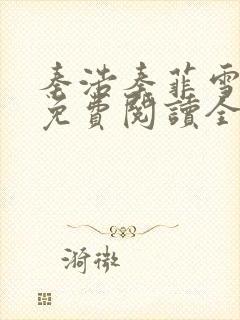 秦浩秦菲雪
免費閱讀全
漪微